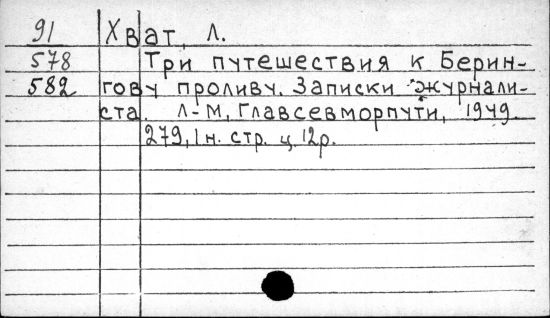 91 Хват, Л.
578 Три путешествия к Берин-
582 гову проливу. Записки журнали-
ста. Л-М, Главсевморпути, 1949.
279, 1 н. стр. ц 12р.